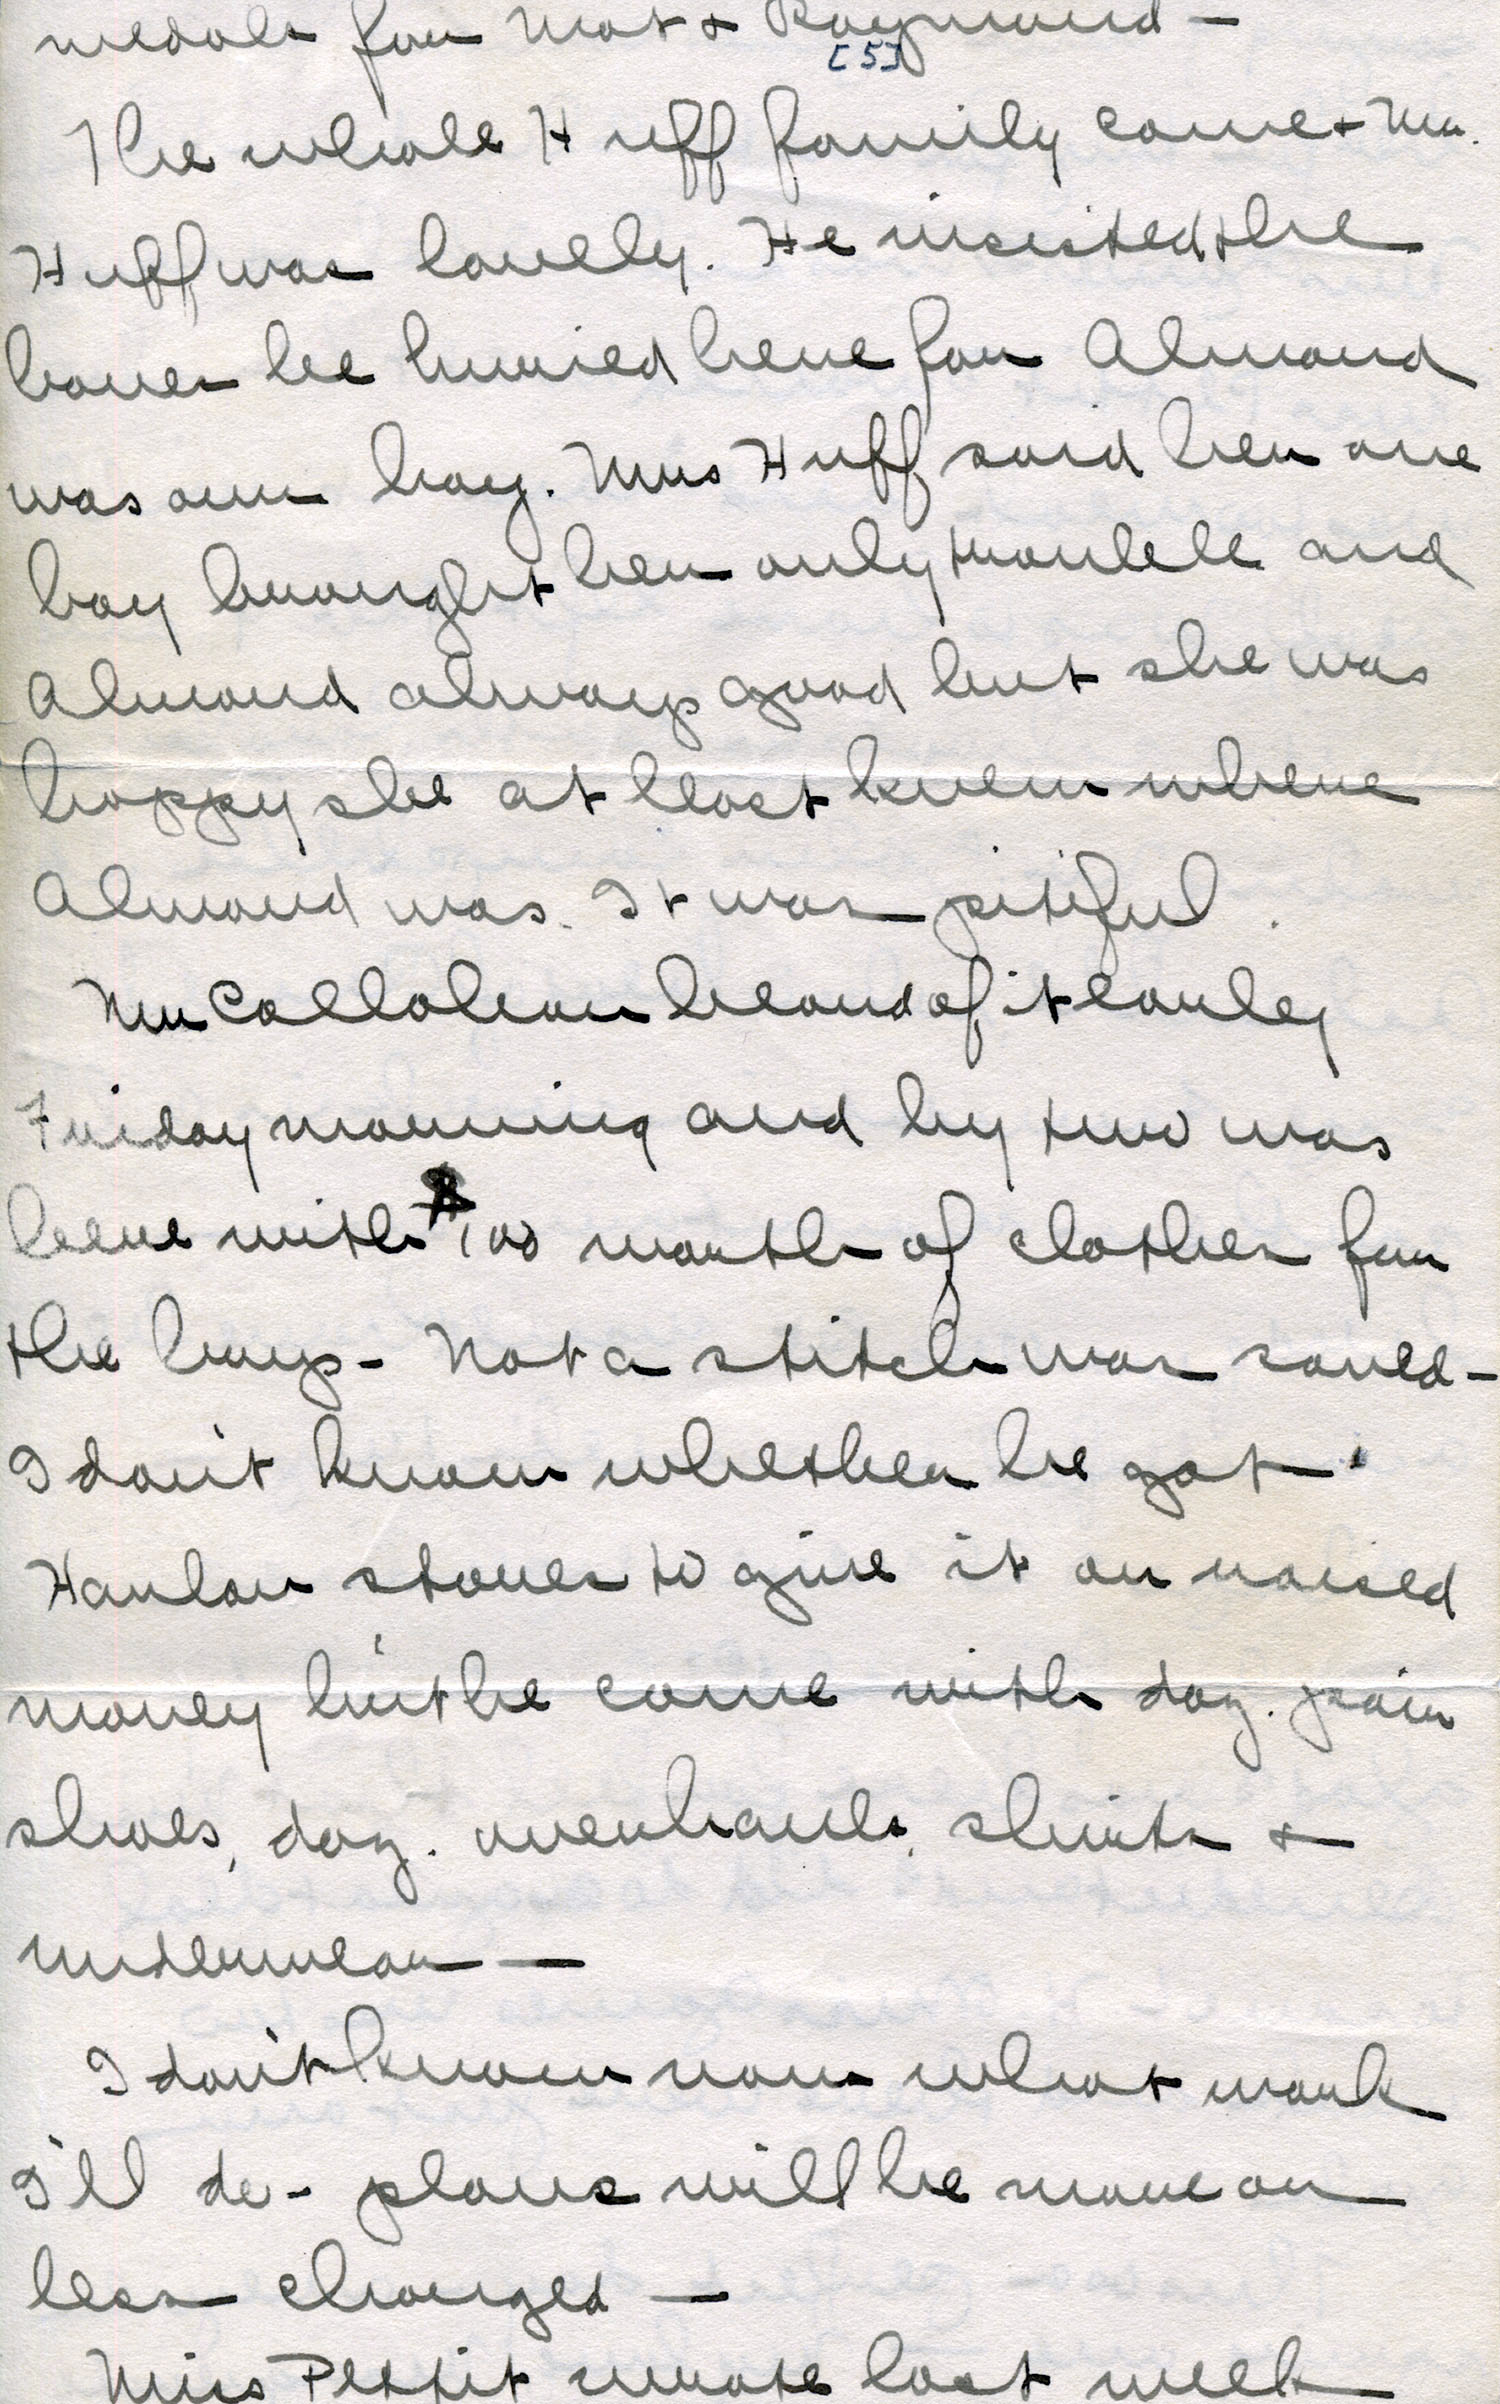 medals for Mat & Raymond -
[5]
The whole Huff family came & Mr.
Huff was lovely. He insisted the
bones be burried here for Almond
was our boy. Mrs Huff said her one
boy brought her only trouble and
Almond always good but she was
happy she at least knew where
Almond was. It was pitiful.
Mr Callahan heard of it early
Friday morning and by two was
here with $100 worth of clothes for
the boys - Not a stitch was saved -
I don't know whether he got
Harlan stores to give it or raised
money but he came with doz. pair
shoes, doz. overhauls, shirts &
underwear -
I don't know now what work
I'll do - plans will be more or
less changed -
Miss Pettit wrote last week